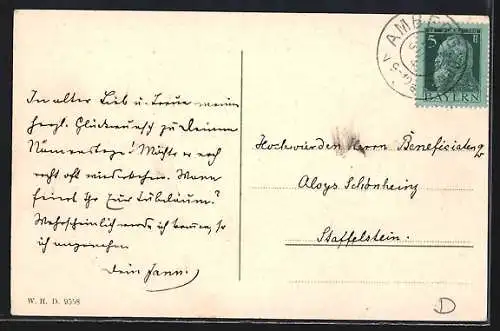 In alter Lieb u. Treue meine
herzl. Glückwunsch zu Deinem
Namenstage! Möchte er noch
recht oft wiederkehren. Wann
feiert Ihr Euer Jubiläum?
Wahrscheinlich werde ich kommen, so
ich angenehm
Dein
W. H. D. 9558
AMBERG
5
BAYERN
Hochwürden Herrn Benefiziaten
Aloys Schönheinz
Staffelstein.
D